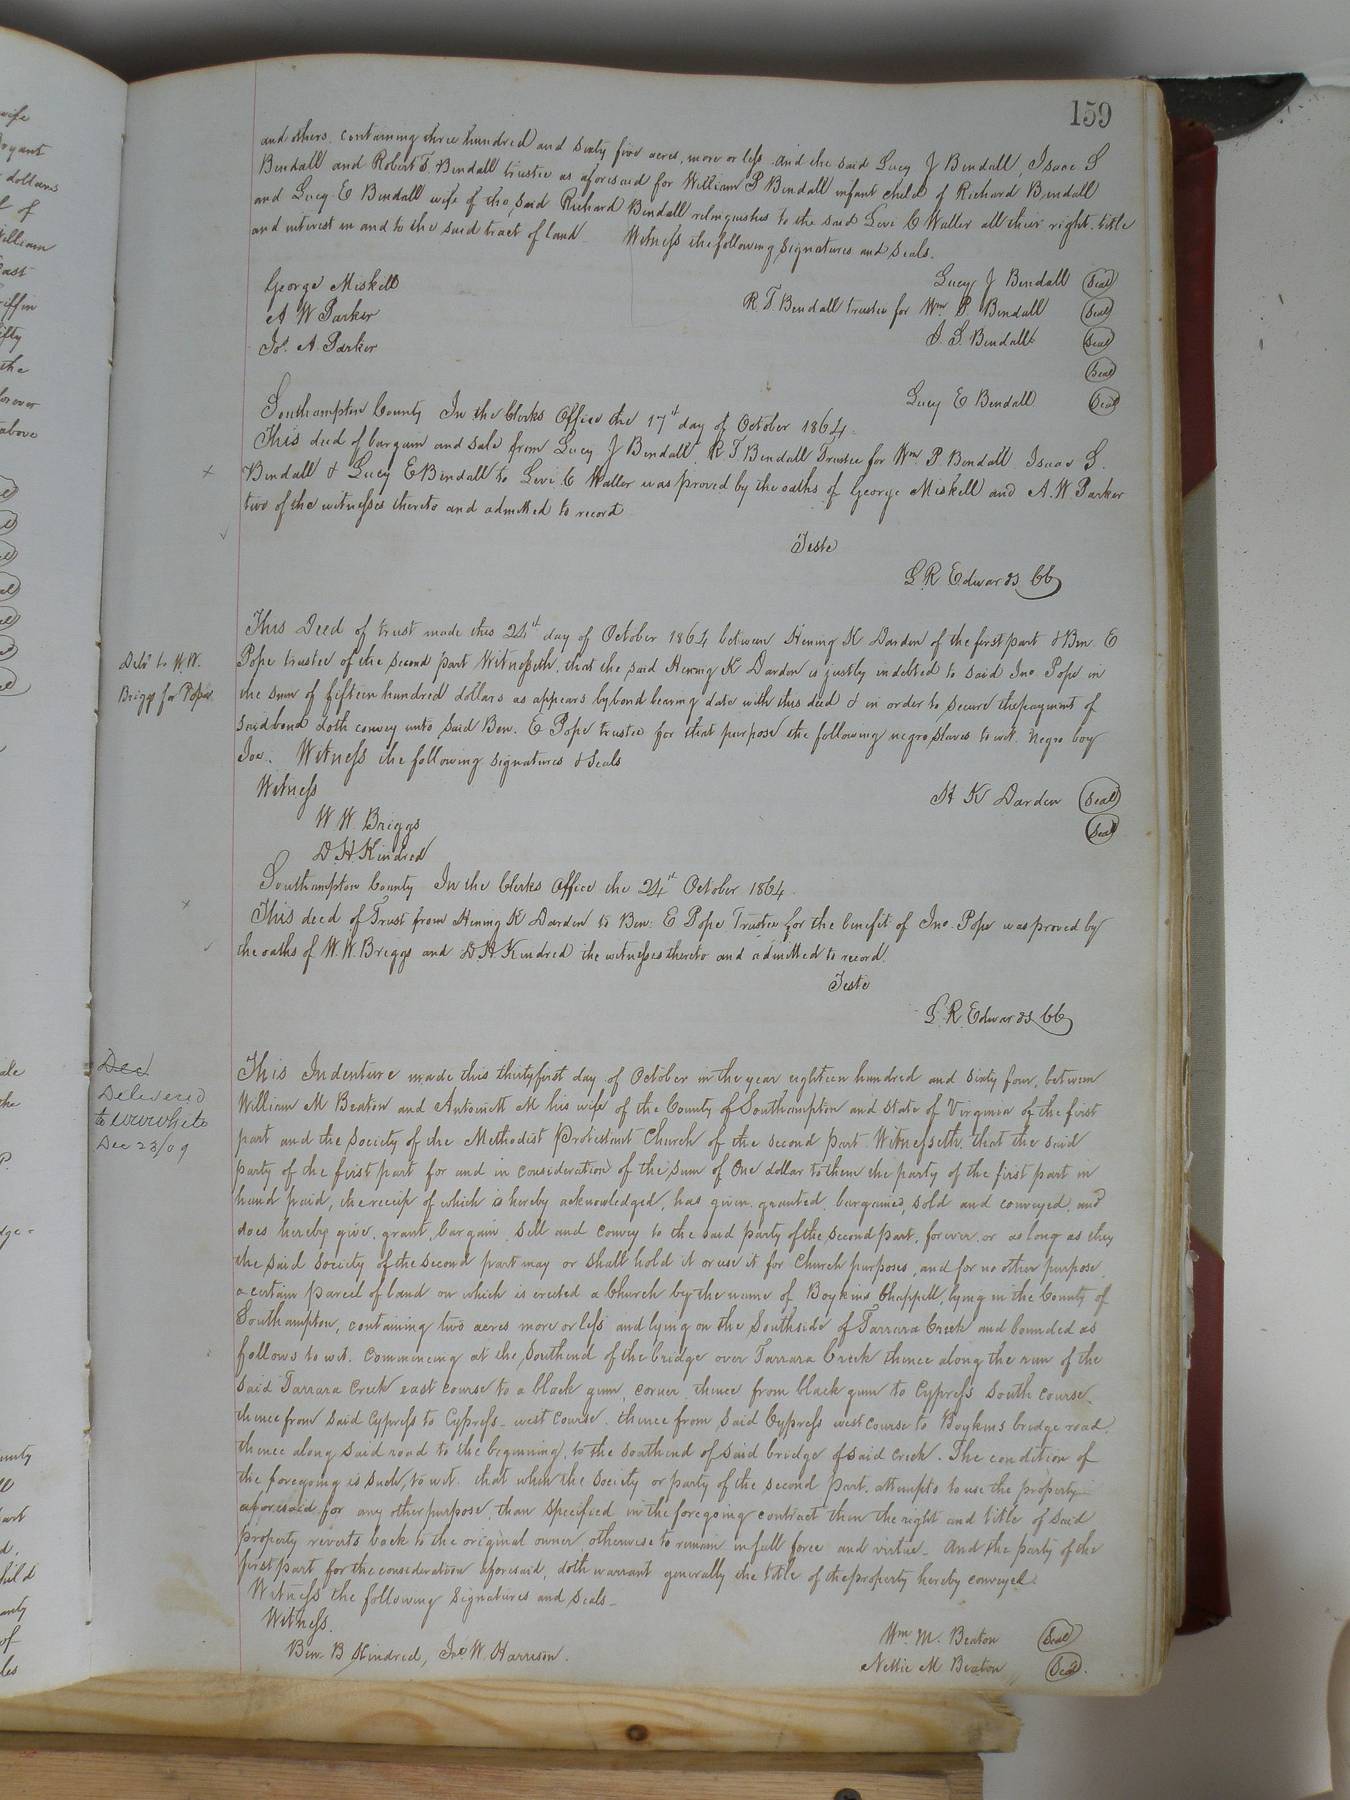 159
and others. containing three hundred and sixty five acres, more or less and the said Lucy J Bendall, Isaac S
Bendall and Robert T. Bendall trustee as aforesaid for William P Bendall infant child of Richard Bendall
and Lucy E Bendall wife of the said Richard Bendall relinquishes to the said Levi C Waller all their right. title
and interest in and to the said tract of land Witness the following signatures and seals.
George Miskell Lucy J Bendall Seal
A W Parker R T Bendall trustee for Wm P. Bendall Seal
Jos. A. Parker I. S. Bendall Seal
Seal
Lucy E Bendall Seal
Southampton County In the Clerks Office the 17th day of October 1864
This deed of bargain and sale from Lucy J Bendall R T Bendall Trustee for Wm P. Bendall Isaac S.
Bendall & Lucy E Bendall to Levi C Waller was proved by the oaths of George Miskell and A. W Parker
two of the witnesses thereto and admitted to record
Teste
L R Edwards CC
This Deed of trust made this 24th day of October 1864 between Hening K Darden of the first part & Ben. E
Pope trustee of the second part Witnesseth. that the said Hening K Darden is justly indebted to said Jno. Pope in
the sum of fifteen hundred dollars as appears by bond bearing date with this deed & in order to secure the payment of
said bond doth convey unto said Ben. E Pope trustee for that purpose the following negro slaves to wit. Negro boy
Joe. Witness the following signatures & seals
Deld to W. W.
Briggs for Pope
Witness H K Darden Seal
W W. Briggs Seal
D. H. Kindred
Southampton County In the Clerks Office the 24th October 1864
This deed of Trust from Hening K Darden to Ben: E Pope Trustee for the benefit of Jno. Pope was proved by
the oaths of W. W. Briggs and D. H. Kindred the witnesses thereto and admitted to record.
Teste
L. R. Edwards CC
Ded
Delivered
to
Dec 23/09
This Indenture made this thirty first day of October in the year eighteen hundred and sixty four, between
William M Beaton and Antoinett M his wife of the County of Southampton and State of Virginia of the first
part and the Society of the Methodist Protestant Church of the second part Witnesseth. that the said
party of the first part for and in consideration of the sum of One dollar to them the party of the first part in
hand paid, the receip of which is hereby acknowledged, has given, granted, bargained, sold and conveyed, and
does hereby give, grant, bargain, sell and convey to the said party of the second part, forever, or as long as they
the said Society of the second part may or shall hold it or use it for Church purposes, and for no other purpose
a certain parcel of land on which is erected a Church by the name of Boykins Chappell, lying in the County of
Southampton, containing two acres more or less and lying on the Southside of Tarrara Creek and bounded as
follows to wit. Commencing at the South end of the bridge over Tarrara Creek thence along the run of the
said Tarrara Creek east course to a black gum, corner, thence from black gum to Cypress South course.
thence from said Cypress to Cypress west course. thence from said Cypress west course to Boykins bridge road.
thence along said road to the beginning, to the South end of said bridge of said creek. The condition of
the foregoing is such, to wit. that when the Society or party of the second part. attempts to use the property
aforesaid for any other purpose, than specified in the foregoing contract then the right and title of said
property reverts back to the original owner, otherwise to remain in full force and virtue. And the party of the
first part for the consideration aforesaid, doth warrant generally the title of the property hereby conveyed.
Witness the following signatures and seals
Witness.
Ben. B Kindred, Jno W. Harrison. Wm. M. Beaton Seal
Nettie M Beaton Seal